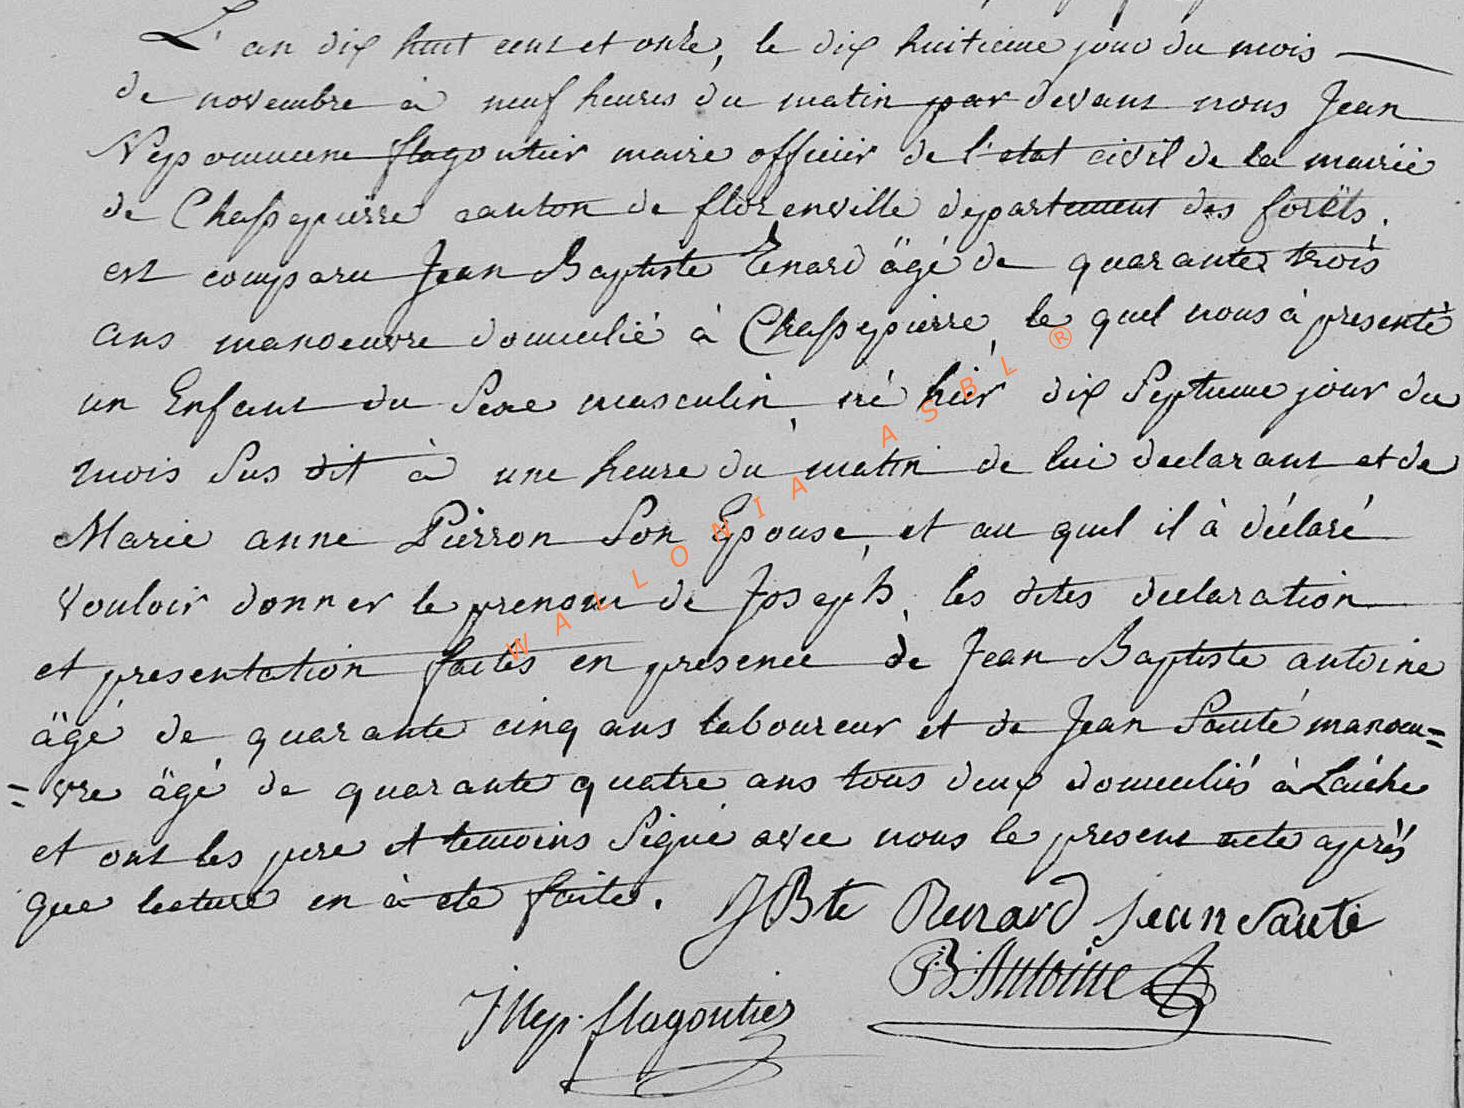 L'an dix huit cent et onze, le dix huitieme jour du mois
de novembre à neuf heures du matin par devant nous Jean
Nepomucene flagontier maire officier de l'etat civil de la mairie
de Chassepierre canton de florenville departement des forëts.
est comparu Jean Baptiste Renard âgé de quarante trois
ans manoeuvre domicilié à Chassepierre, le quel nous à presenté
un Enfant du Sexe masculin, né hier dix Septieme jour du
mois Sus dit à une heure du matin de lui declarant et de
Marie anne Pierron Son Epouse, et au quel il à déclaré
vouloir donner le prenom de Joseph, les dites declaration
et presentation faites en presence de Jean Baptiste antoine
ägé de quarante cinq ans laboureur et de Jean Sauté manoeu=
=vre ägé de quarante quatre ans tous deux domiciliés à Laiche
et ont les pere et temoins Signé avec nous le present acte après
que lecture en à ete faite. JBte Renard Jean Sauté
B Antoine
JNep. flagontier
WALLONIA ASBL ®